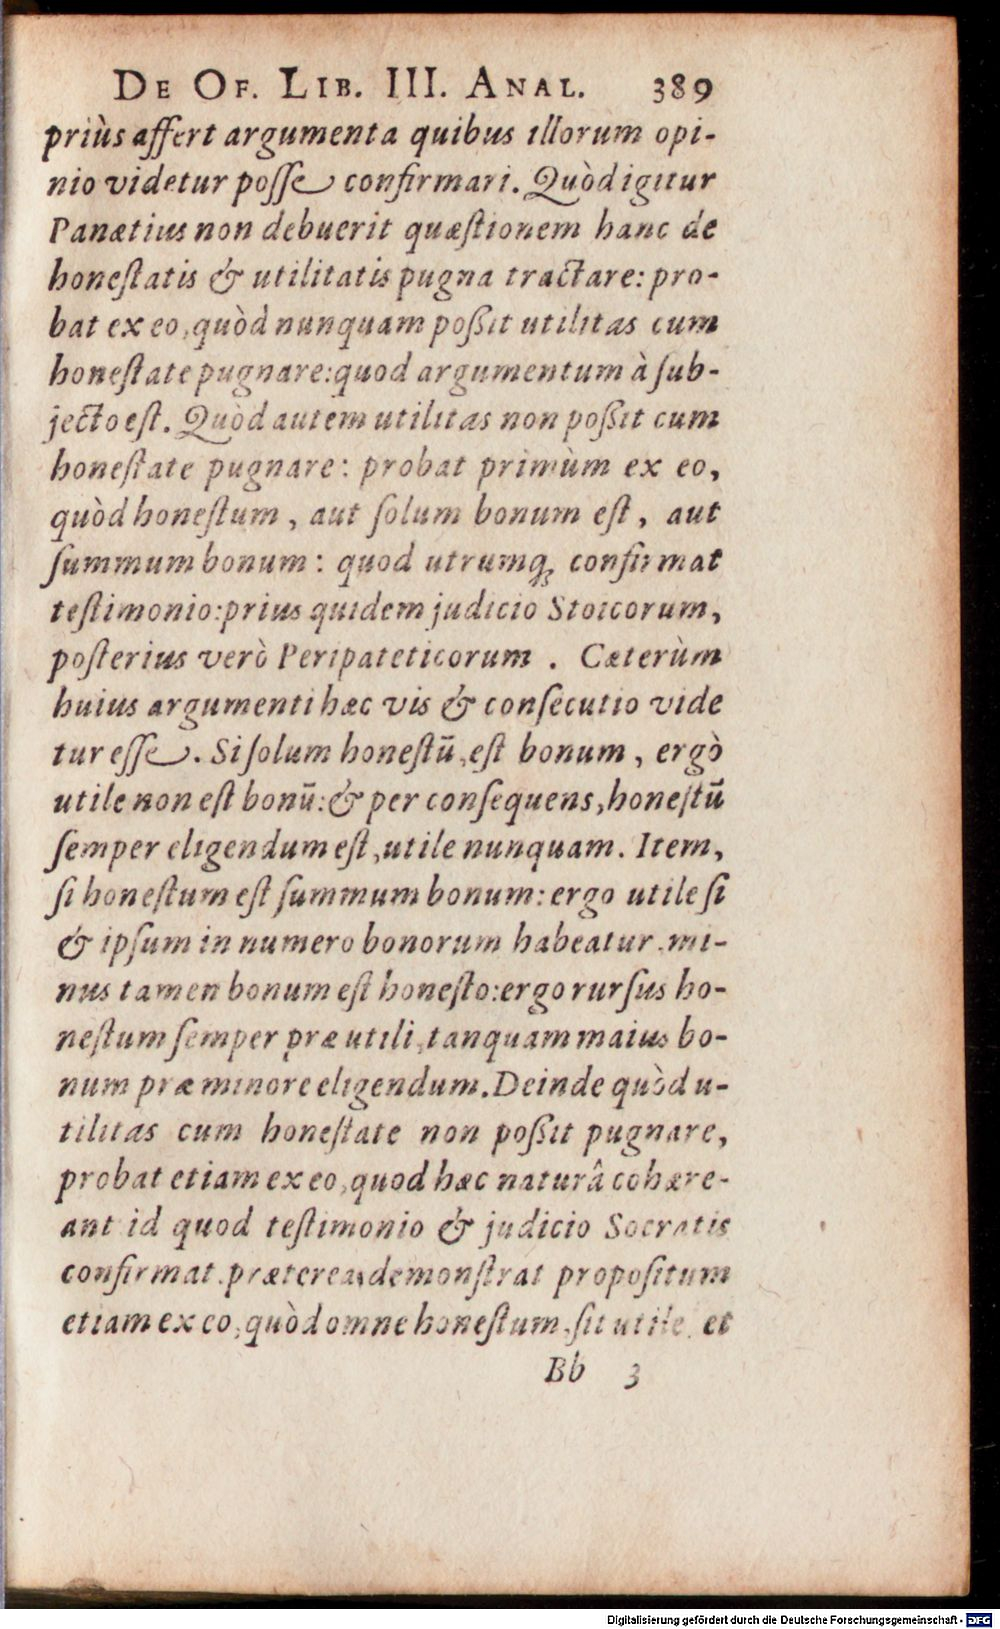 DE OF. LIB. III. ANAL. 389
priùs affert argumenta quibus illorum opi-
nio videtur posse confirmari. Quòd igitur
Panætius non debuerit quæstionem hanc de
honestatis & utilitatis pugna tractare: pro-
bat ex eo, quòd nunquam poßit utilitas cum
honestate pugnare: quod argumentum à sub-
jecto est. Quòd autem utilitas non poßit cum
honestate pugnare: probat primùm ex eo,
quòd honestum, aut solum bonum est, aut
summum bonum: quod utrumq; confirmat
testimonio: prius quidem judicio Stoicorum,
posterius verò Peripateticorum. Cæterùm
huius argumenti hæc vis & consecutio vide
tur esse. Si solum honestū, est bonum, ergò
utile non est bonū: & per consequens, honestū
semper eligendum est, utile nunquam. Item,
si honestum est summum bonum: ergo utile si
& ipsum in numero bonorum habeatur, mi-
nus tamen bonum est honesto: ergo rursus ho-
nestum semper præ utili, tanquam maius bo-
num præ minore eligendum. Deinde quòd u-
tilitas cum honestate non poßit pugnare,
probat etiam ex eo, quod hæc naturâ cohære-
ant id quod testimonio & judicio Socratis
confirmat. præterea, demonstrat propositum
etiam ex eo, quòd omne honestum, sit utile, et
Bb 3
Digitalisierung gefördert durch die Deutsche Forschungsgemeinschaft - DFG